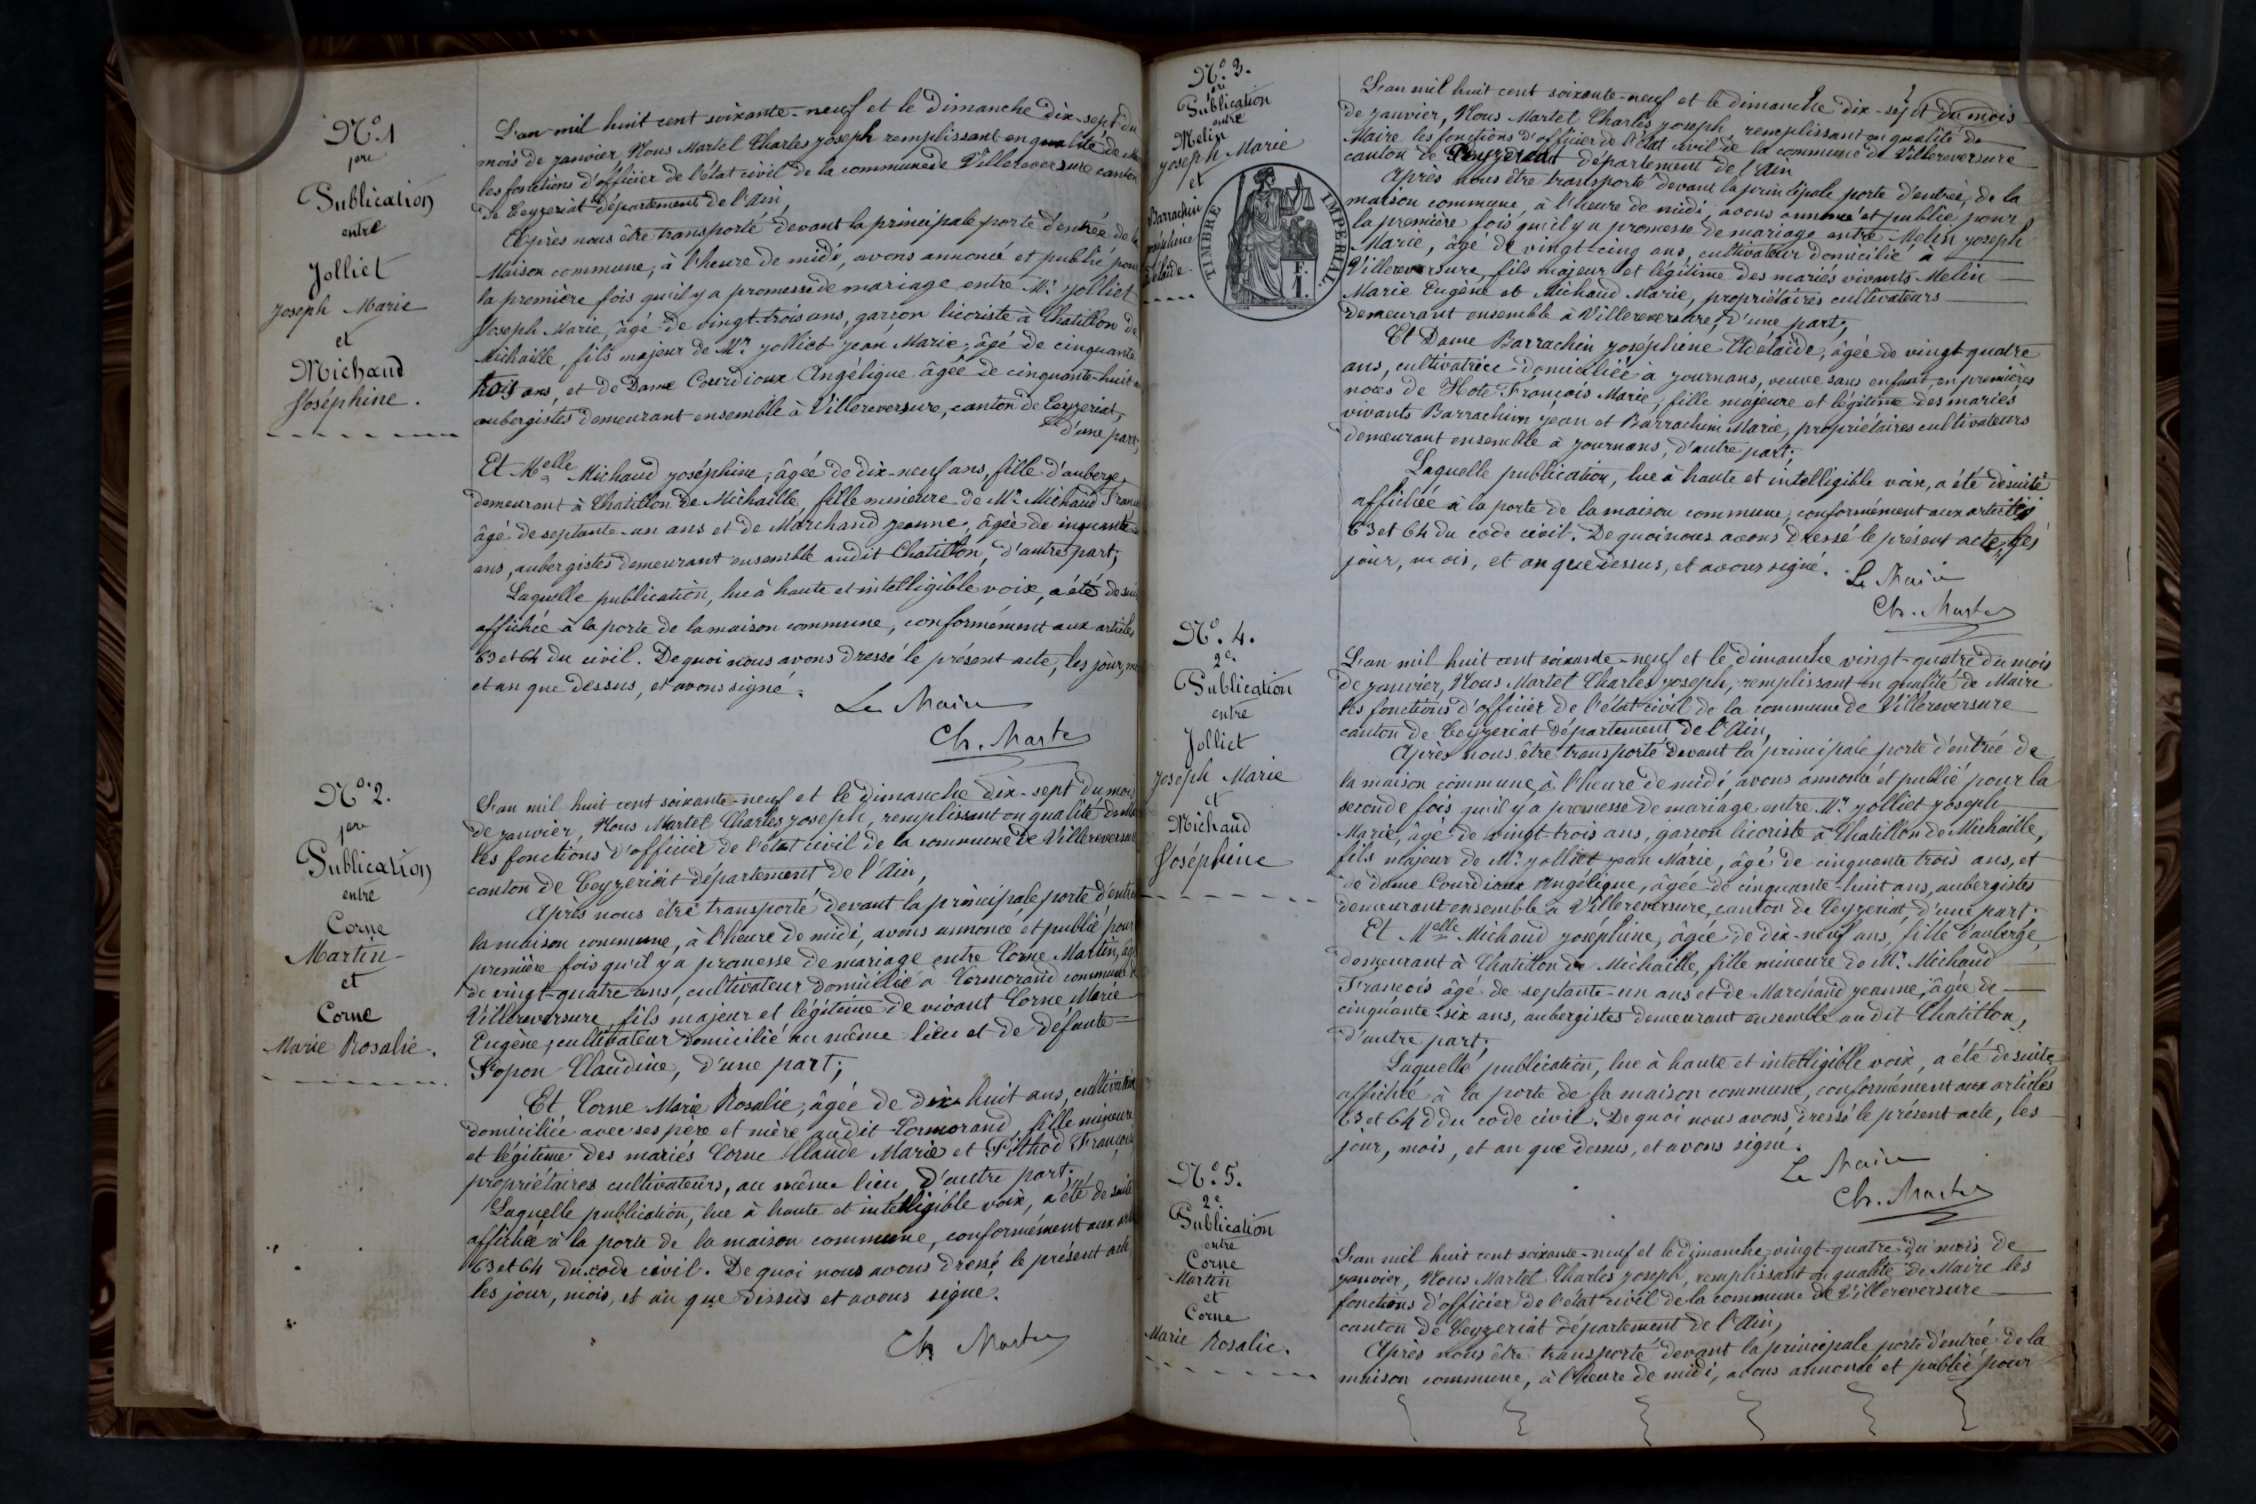 N.º 1
1ere
Publication
entre
Jolliet
Joseph Marie
et
Michaud
Joséphine.
L'an mil huit cent soixante-neuf et le Dimanche dix-sept du
mois de janvier Nous Martel Charles Joseph remplissant en qualité de
les fonctions d'officier de l'état civil de la commune de Villereversure canton
de Ceyzeriat département de l'Ain,
Après nous être transporté devant la principale porte d'entrée de la
Maison commune, à l'heure de midi, avons annoncé et publié pour
la première fois qu'il y a promesse de mariage entre Mr. Jolliet
Joseph Marie, âgé de vingt-trois ans, garçon licoriste à Chatillon de
Michaille, fils majeur de Mr. Jolliet Jean Marie, âgé de cinquante
trois ans, et de Dame Courdioux Angélique âgée de cinquante-huit
aubergistes demeurant ensemble à Villereversure, canton de Ceyzeriat,
d'une part,
Et Melle Michaud Joséphine, âgée de dix-neuf ans, fille d'auberge,
demeurant à Chatillon de Michaille, fille mineure de Mr. Michaud
âgé de septante-un ans et de Marchand Jeanne, âgée de
ans, aubergistes demeurant ensemble audit Chatillon, d'autre part;
Laquelle publication, lue à haute et intelligible voix, a été de
affichée à la porte de la maison commune, conformément aux articles
63 et 64 du civil. De quoi nous avons dressé le présent acte, les jour,
et an que dessus, et avons signé.
Le Maire
Ch. Martel
N.º 2.
1ere
Publication
entre
Corne
Martin
et
Corne
Marie Rosalie.
L'an mil huit cent soixante-neuf et le Dimanche dix-sept du mois
de janvier, Nous Martel Charles Joseph, remplissant en qualité de
les fonctions d'officier de l'état civil de la commune de Villereversure
canton de Ceyzeriat département de l'Ain,
Après nous être transporté devant la principale porte d'entrée
la maison commune, à l'heure de midi, avons annoncé et publié pour
première fois qu'il y a promesse de mariage entre Corne Martin, âgé
de vingt-quatre ans, cultivateur domicilié à Cormorand commune
Villereversure fils majeur et légitime de vivant Corne Marie
Eugène, cultivateur domicilié au même lieu et de défunte
Claudine, d'une part;
Et Corne Marie Rosalie, âgée de dix-huit ans, cultivatrice
domiciliée avec ses père et mère audit Cormorand, fille mineure
et légitime des mariés Corne Claude Marie et Pithod Françoise
propriétaires cultivateurs, au même lieu, d'autre part;
Laquelle publication, lue à haute et intelligible voix, a été de suite
affichée à la porte de la maison commune, conformément aux
63 et 64 du code civil. De quoi nous avons dressé le présent acte,
les jour, mois, et an que dessus et avons signé.
Ch Martel
N.º 3.
1ere
Publication
entre
Melin
Joseph Marie
et
Barrachin
Joséphine
Adélaïde.
TIMBRE IMPÉRIAL
L'an mil huit cent soixante-neuf et le dimanche dix-sept du mois
de janvier, Nous Martel Charles Joseph, remplissant en qualité de
Maire les fonctions d'officier de l'état civil de la commune de Villereversure
canton de Ceyzeriat département de l'Ain
Après nous être transporté devant la principale porte d'entrée, de la
maison commune, à l'heure de midi, avons annoncé et publié pour
la première fois qu'il y a promesse de mariage entre Melin Joseph
Marie, âgé de vingt-cinq ans, cultivateur domicilié à
Villereversure, fils majeur et légitime des mariés vivants Melin
Marie Eugène et Michaud Marie, propriétaires cultivateurs
demeurant ensemble à Villereversure, d'une part;
Et Dame Barrachin Joséphine Adélaïde, âgée de vingt quatre
ans, cultivatrice domiciliée à Journans, veuve sans enfant, en premières
noces de Hote François Marie, fille majeure et légitime des mariés
vivants Barrachin Jean et Barrachin Marie, propriétaires cultivateurs
demeurant ensemble à Journans, d'autre part;
Laquelle publication, lue à haute et intelligible voix, a été de suite
affichée à la porte de la maison commune, conformément aux articles
63 et 64 du code civil. De quoi nous avons dressé le présent acte, les
jour, mois, et an que dessus, et avons signé.
Le Maire
Ch. Martel
N.º 4.
2e.
Publication
entre
Jolliet
Joseph Marie
et
Michaud
Joséphine
L'an mil huit cent soixante-neuf et le dimanche vingt-quatre du mois
de janvier, Nous Martel Charles Joseph, remplissant en qualité de Maire
les fonctions d'officier de l'état civil de la commune de Villereversure
canton de Ceyzeriat département de l'Ain,
Après nous être transporté devant la principale porte d'entrée de
la maison commune, à l'heure de midi, avons annoncé et publié pour la
seconde fois qu'il y a promesse de mariage entre Mr. Jolliet Joseph
Marie, âgé de vingt-trois ans, garçon licoriste à Chatillon de Michaille,
fils majeur de Mr. Jolliet Jean Marie, âgé de cinquante trois ans, et
de dame Courdioux Angélique, âgée de cinquante-huit ans, aubergistes
demeurant ensemble à Villereversure, canton de Ceyzeriat d'une part.
Et Melle Michaud Joséphine, âgée de dix-neuf ans, fille d'auberge,
demeurant à Chatillon de Michaille, fille mineure de Mr. Michaud
François âgé de septante-un ans et de Marchand Jeanne, âgée de
cinquante-six ans, aubergistes demeurant ensemble audit Chatillon,
d'autre part;
Laquelle publication, lue à haute et intelligible voix, a été de suite
affichée à la porte de la maison commune, conformément aux articles
63 et 64 d du code civil. De quoi nous avons dressé le présent acte, les
jour, mois, et an que dessus, et avons signé.
Le Maire
Ch. Martel
N.º 5.
2e.
Publication
entre
Corne
Martin
et
Corne
Marie Rosalie.
L'an mil huit cent soixante-neuf et le dimanche vingt-quatre du mois de
janvier, Nous Martel Charles Joseph, remplissant en qualité de Maire les
fonctions d'officier de l'état civil de la commune de Villereversure
canton de Ceyzeriat département de l'Ain,
Après nous être transporté devant la principale porte d'entrée de la
maison commune, à l'heure de midi, avons annoncé et publié pour